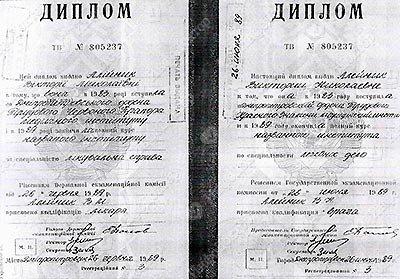 ДИПЛОМ
ТВ № 805237
Цей диплом видано Алейник
Вікторії Миколаївні
в тому, що вона в 1983 році вступила
до Дніпропетровського ордена
Трудового Червоного Прапора
медичного інституту
і в 1989 році закінчила повний курс
названого інституту
за спеціальністю лікувальна справа
Рішенням Державної екзаменаційної комісії
від «26» червня 1989 р.
Алейник В.М.
присвоєно кваліфікацію лікаря
Голова Державної
екзаменаційної комісії
Ректор
Секретар
М. П.
Місто Дніпропетровськ 26 червня 1989 р.
Реєстраційний № 3
26 июня 89
ДИПЛОМ
ТВ № 805237
Настоящий диплом выдан Алейник
Виктории Николаевне
в том, что она в 1983 году поступила
в Днепропетровский ордена Трудового
Красного Знамени мединститут
и в 1989 году окончила полный курс
названного института
по специальности лечебное дело
Решением Государственной экзаменационной комиссии
от «26» июня 1989 г.
Алейник В.Н.
присвоена квалификация врача
Председатель Государственной
экзаменационной комиссии
Ректор
Секретарь
М. П.
Город Днепропетровск 26 июня 1989 г.
Регистрационный № 3